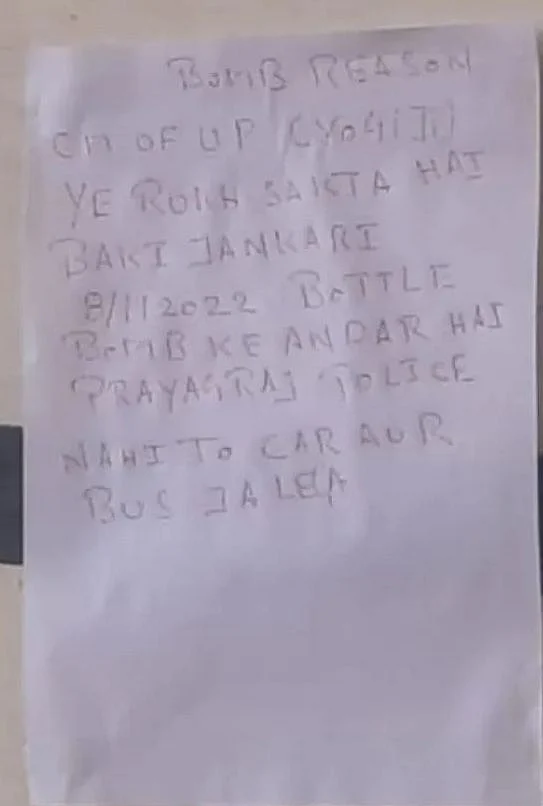 BOMB REASON
CM OF UP (YOGI JI)
YE ROKH SAKTA HAI
BAKI JANKARI
8/1/2022 BOTTLE
BOMB KE ANDAR HAI
PRAYAGRAJ POLICE
NAHI TO CAR AUR
BUS JALEGA